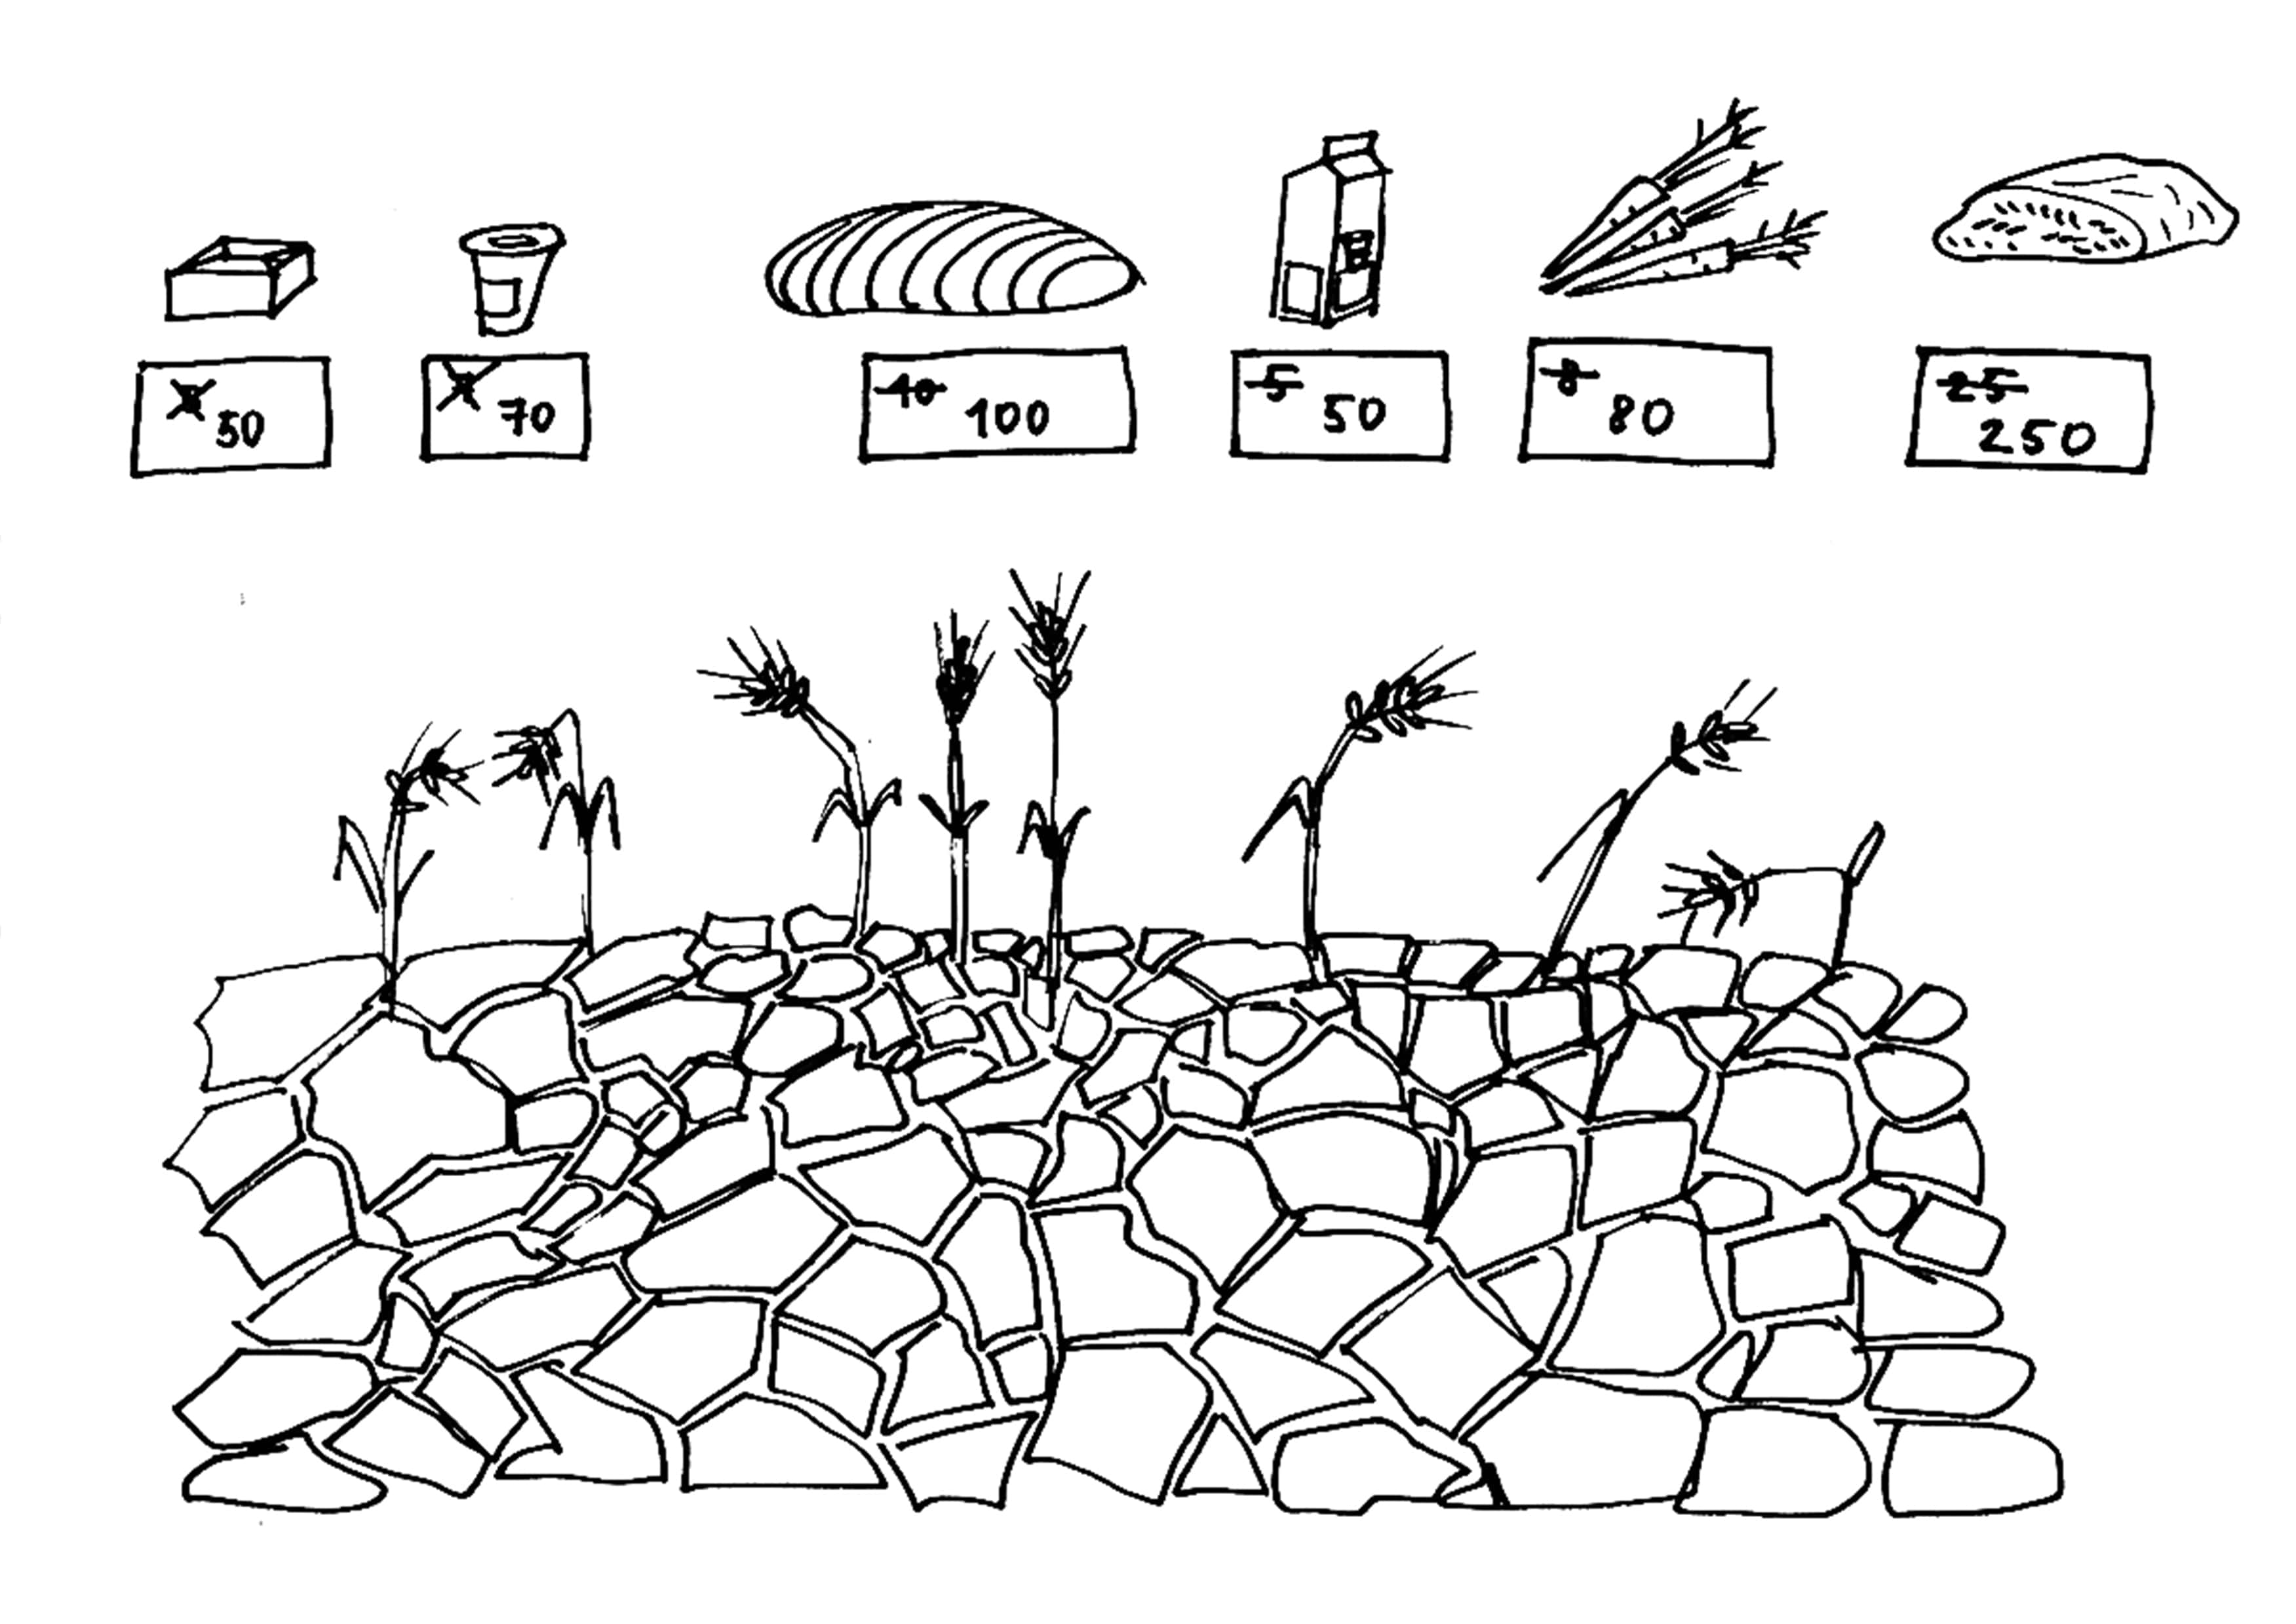 50
70
10 100
5 50
8 80
25
250